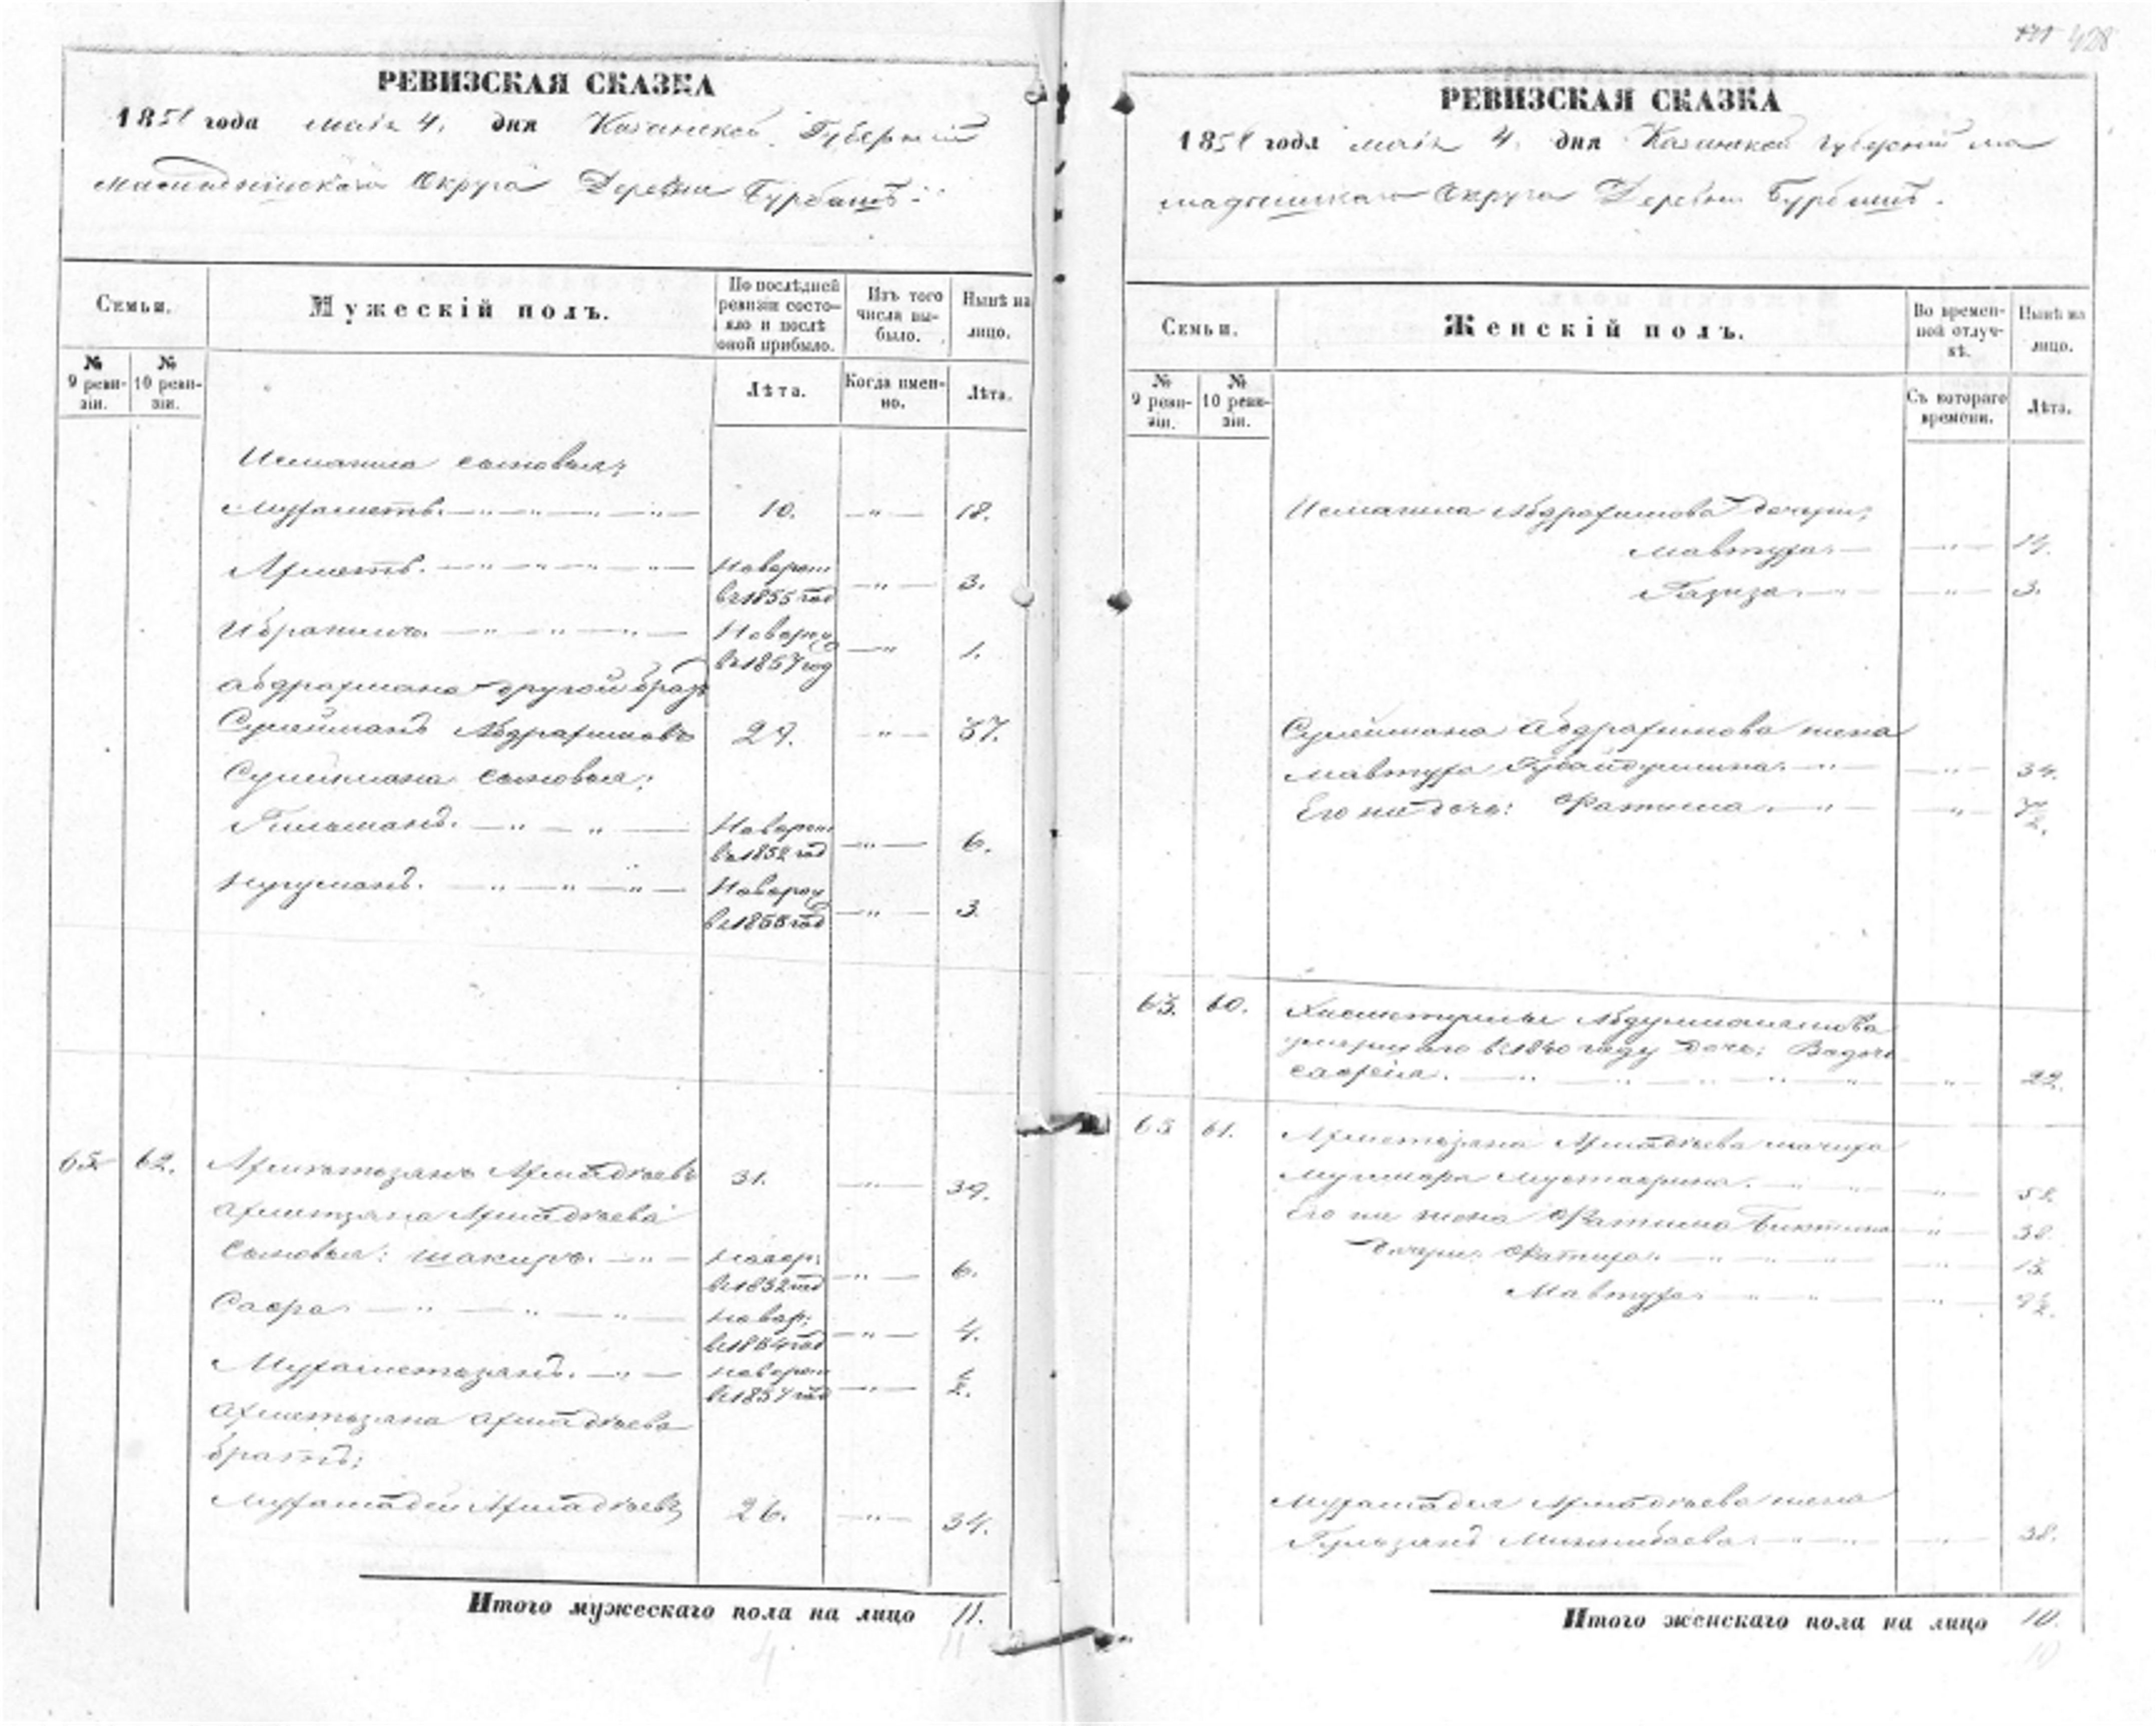 428
РЕВИЗСКАЯ СКАЗКА
1858 года маія 4. дня Казанской Губерніи
Мамадышскаго Округа Деревни Бурбашъ.
Семьи.
Мужескій полъ.
По послѣдней ревизіи состояло и послѣ оной прибыло.
Изъ того числа выбыло.
Нынѣ на лицо.
№ 9 ревизіи.
№ 10 ревизіи.
Лѣта.
Когда именно.
Лѣта.
Исмагила сыновья;
Мухаметъ. 10. 18.
Ахметъ.Новорож въ 1855 год 3.
Ибрагимъ. Новорож въ 1857 год 1.
Абдрахмана другой братъ
Сулейманъ Абдрахимовъ 29. 37.
Сулеймана сыновья;
Гильманъ. Новорож въ 1852 год 6.
Нугуманъ. Новорож въ 1855 год 3.
65. 62. Ахметьзянъ Ахмадіевъ 31. 39.
Ахметзяна Ахмадіева
сыновья: Шакиръ. новор: въ 1852 год 6.
Сафа новор: въ 1854 год 4.
Мухаметьзянъ. новорож въ 1857 год ½.
Ахметьзяна Ахмадіева
братъ;
Мухамадей Ахмадіевъ 26. 34.
Итого мужескаго пола на лицо 11.
4 11
РЕВИЗСКАЯ СКАЗКА
1858 года маія 4. дня Казанской губерніи Ма
мадышскаго Округа Деревни Бурбашъ.
Семьи.
Женскій полъ.
Во временной отлучкѣ.
Нынѣ на лицо.
№ 9 ревизіи.
№ 10 ревизіи.
Съ котораго времени.
Лѣта.
Исмагила Абдрахимова дочери;
Мавтуха 14.
Газиза. 3.
Сулеймана Абдрахимова жена
Мавтуха Губайдуллина. 34.
Его же дочь: Фатима.
63. 60.
умершаго въ 1840 году дочь:
22.
65 61. Ахметьзяна Ахмадіева мачиха
Мустафина. 52.
Его же жена Фатима 38.
Дочери: Фатиха 15.
Мавтуха
Мухамадея Ахмадіева жена
Гульзянъ Миннибаева. 38.
Итого женскаго пола на лицо 10.
10